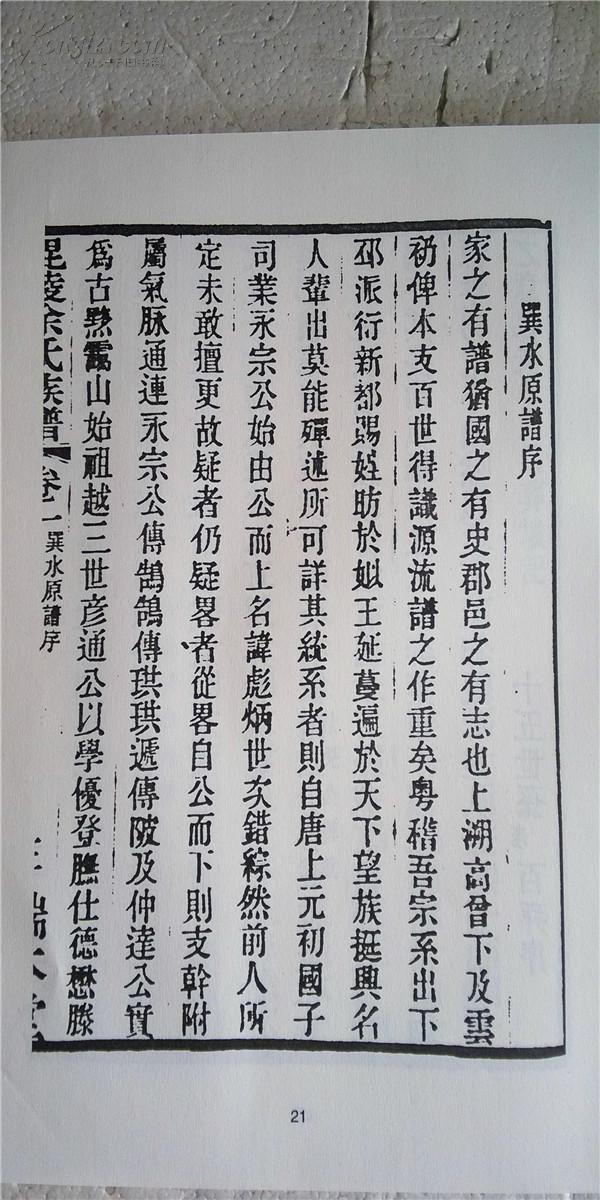 巽水原譜序
家之有譜猶國之有史郡邑之有志也上溯高曾下及雲
礽俾本支百世得識源流譜之作重矣粤稽吾宗系出下
邳派衍新都賜姓昉於姒王延蔓遍於天下望族挺興名
人輩出莫能殫述所可詳其統系者則自唐上元初國子
司業永宗公始由公而上名諱彪炳世次錯綜然前人所
定未敢擅更故疑者仍疑畧者從畧自公而下則支幹附
屬氣脉通連永宗公傳鵠鵠傳珙珙遞傳陂及仲達公實
爲古黟靄山始祖越三世彦通公以學優登膴仕德懋滕
毘陵余氏族譜 卷二 巽水原譜序
21